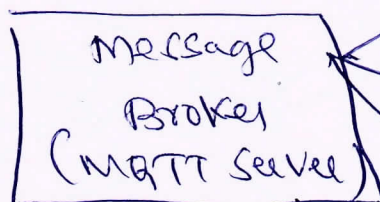 Message
Broker
(MQTT Server)